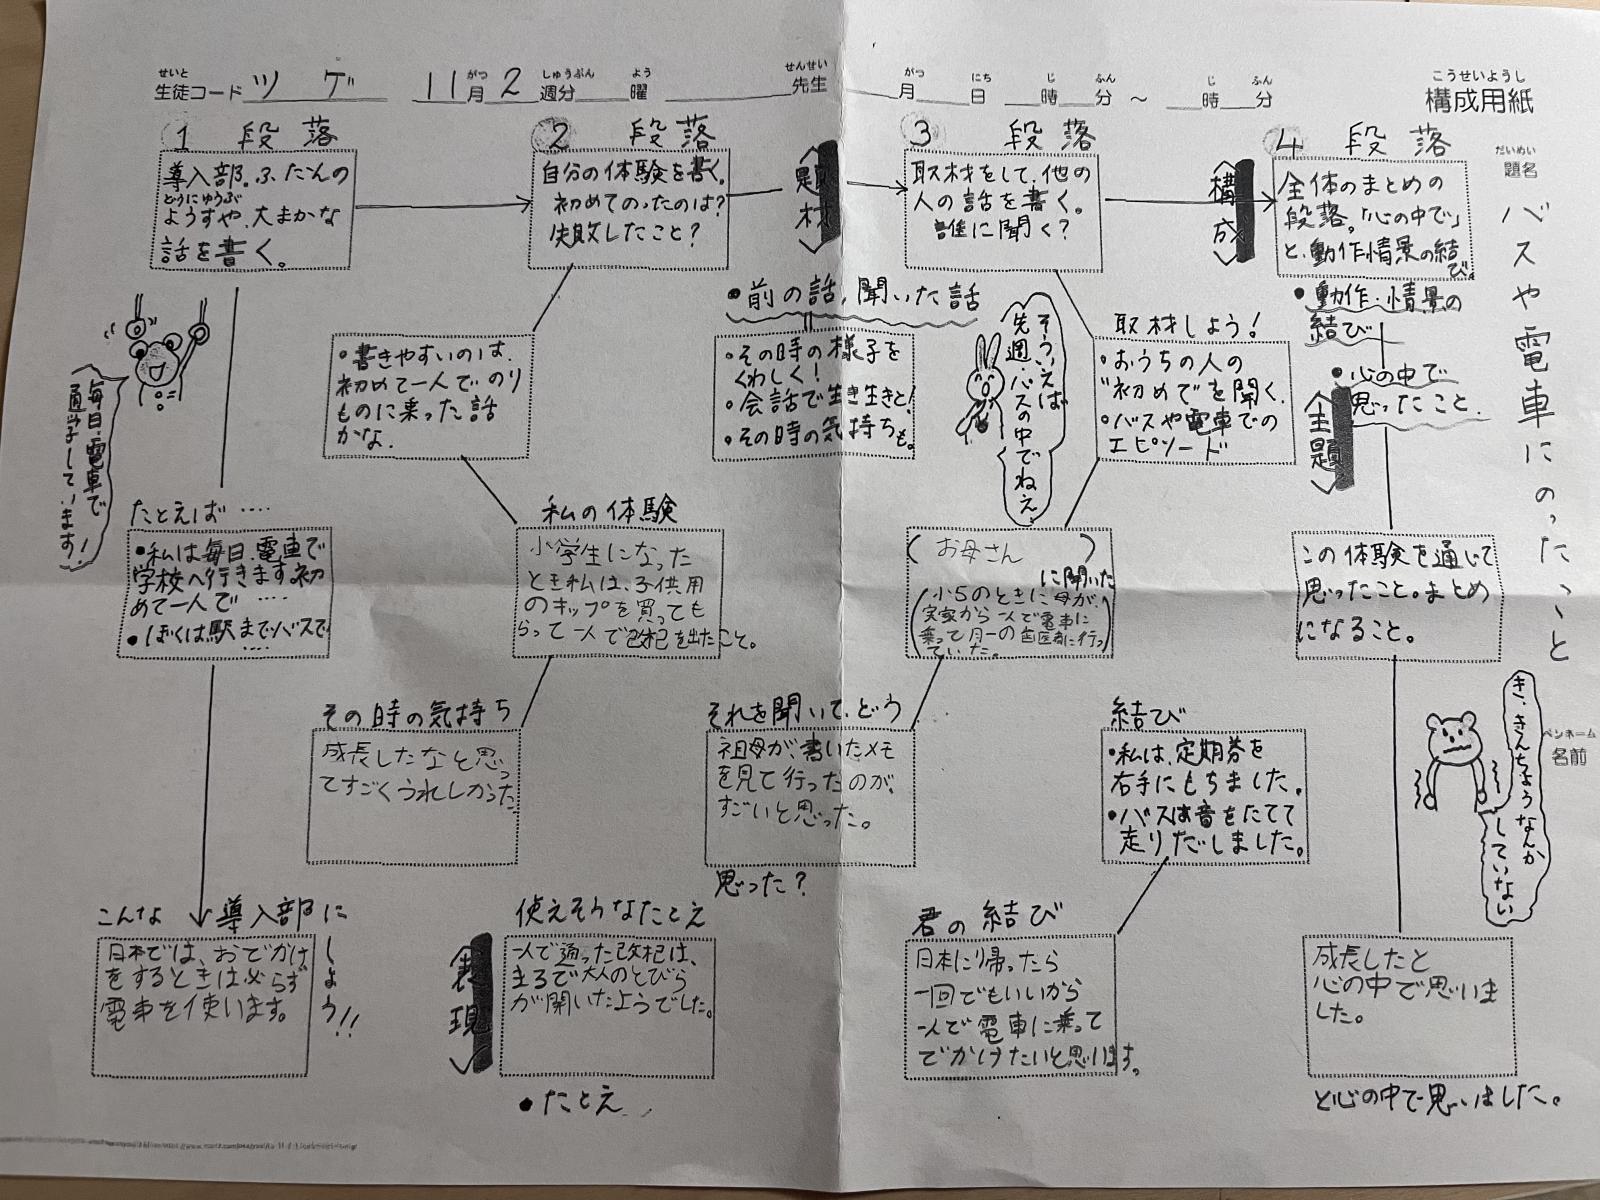 せいと
生徒コード ツゲ 11月2週分 曜 先生
がつ しゅうぶん よう せんせい
月 日 時 分 ~ 時 分
がつ にち じ ふん じ ふん
こうせいようし
構成用紙
だいめい
題名
バスや電車にのったこと
ペンネーム
名前
1 段落
導入部。ふだんの
どうにゅうぶ
ようすや、大まかな
話を書く。
毎日、電車で
通学しています!
たとえば‥‥
•私は毎日、電車で
学校へ行きます。初
めて一人で‥‥
•ぼくは駅までバスで
‥‥
こんな導入部にしよう!!
日本では、おでかけ
をするときは必らず
電車を使います。
2 段落
自分の体験を書く。
初めてのったのは?
失敗したこと?
•書きやすいのは、
初めて一人でのり
ものに乗った話
かな。
私の体験
小学生になった
とき私は、子供用
のキップを買っても
らって一人で改札を出たこと。
その時の気持ち
成長したなと思っ
てすごくうれしかった
表現
使えそうなたとえ
一人で通った改札は、
まるで大人のとびら
が開いたようでした。
•たとえ
題材
•前の話、聞いた話
•その時の様子を
くわしく!
•会話で生き生きと!
•その時の気持ちも。
3 段落
取材をして、他の
人の話を書く。
誰に聞く?
そういえば
先週、バスの中でねえ
取材しよう!
•おうちの人の
"初めて"を聞く。
•バスや電車での
エピソード
(お母さん)
に聞いた
(小5のときに母が、
実家から一人で電車に
乗って月一の歯医者に行っ
ていた。)
それを聞いて、どう
祖母が、書いたメモ
を見て行ったのが、
すごいと思った。
思った?
結び
•私は、定期券を
右手にもちました。
•バスは音をたてて
走りだしました。
君の結び
日本に帰ったら
一回でもいいから
一人で電車に乗って
でかけたいと思います。
構成
4 段落
全体のまとめの
段落。「心の中で」
と、動作情景の結び。
•動作・情景の
結び
•心の中で
思ったこと。
主題
この体験を通じて
思ったこと。まとめ
になること。
き、きんちょうなんか
していない
成長したと
心の中で思いま
した。
と心の中で思いました。